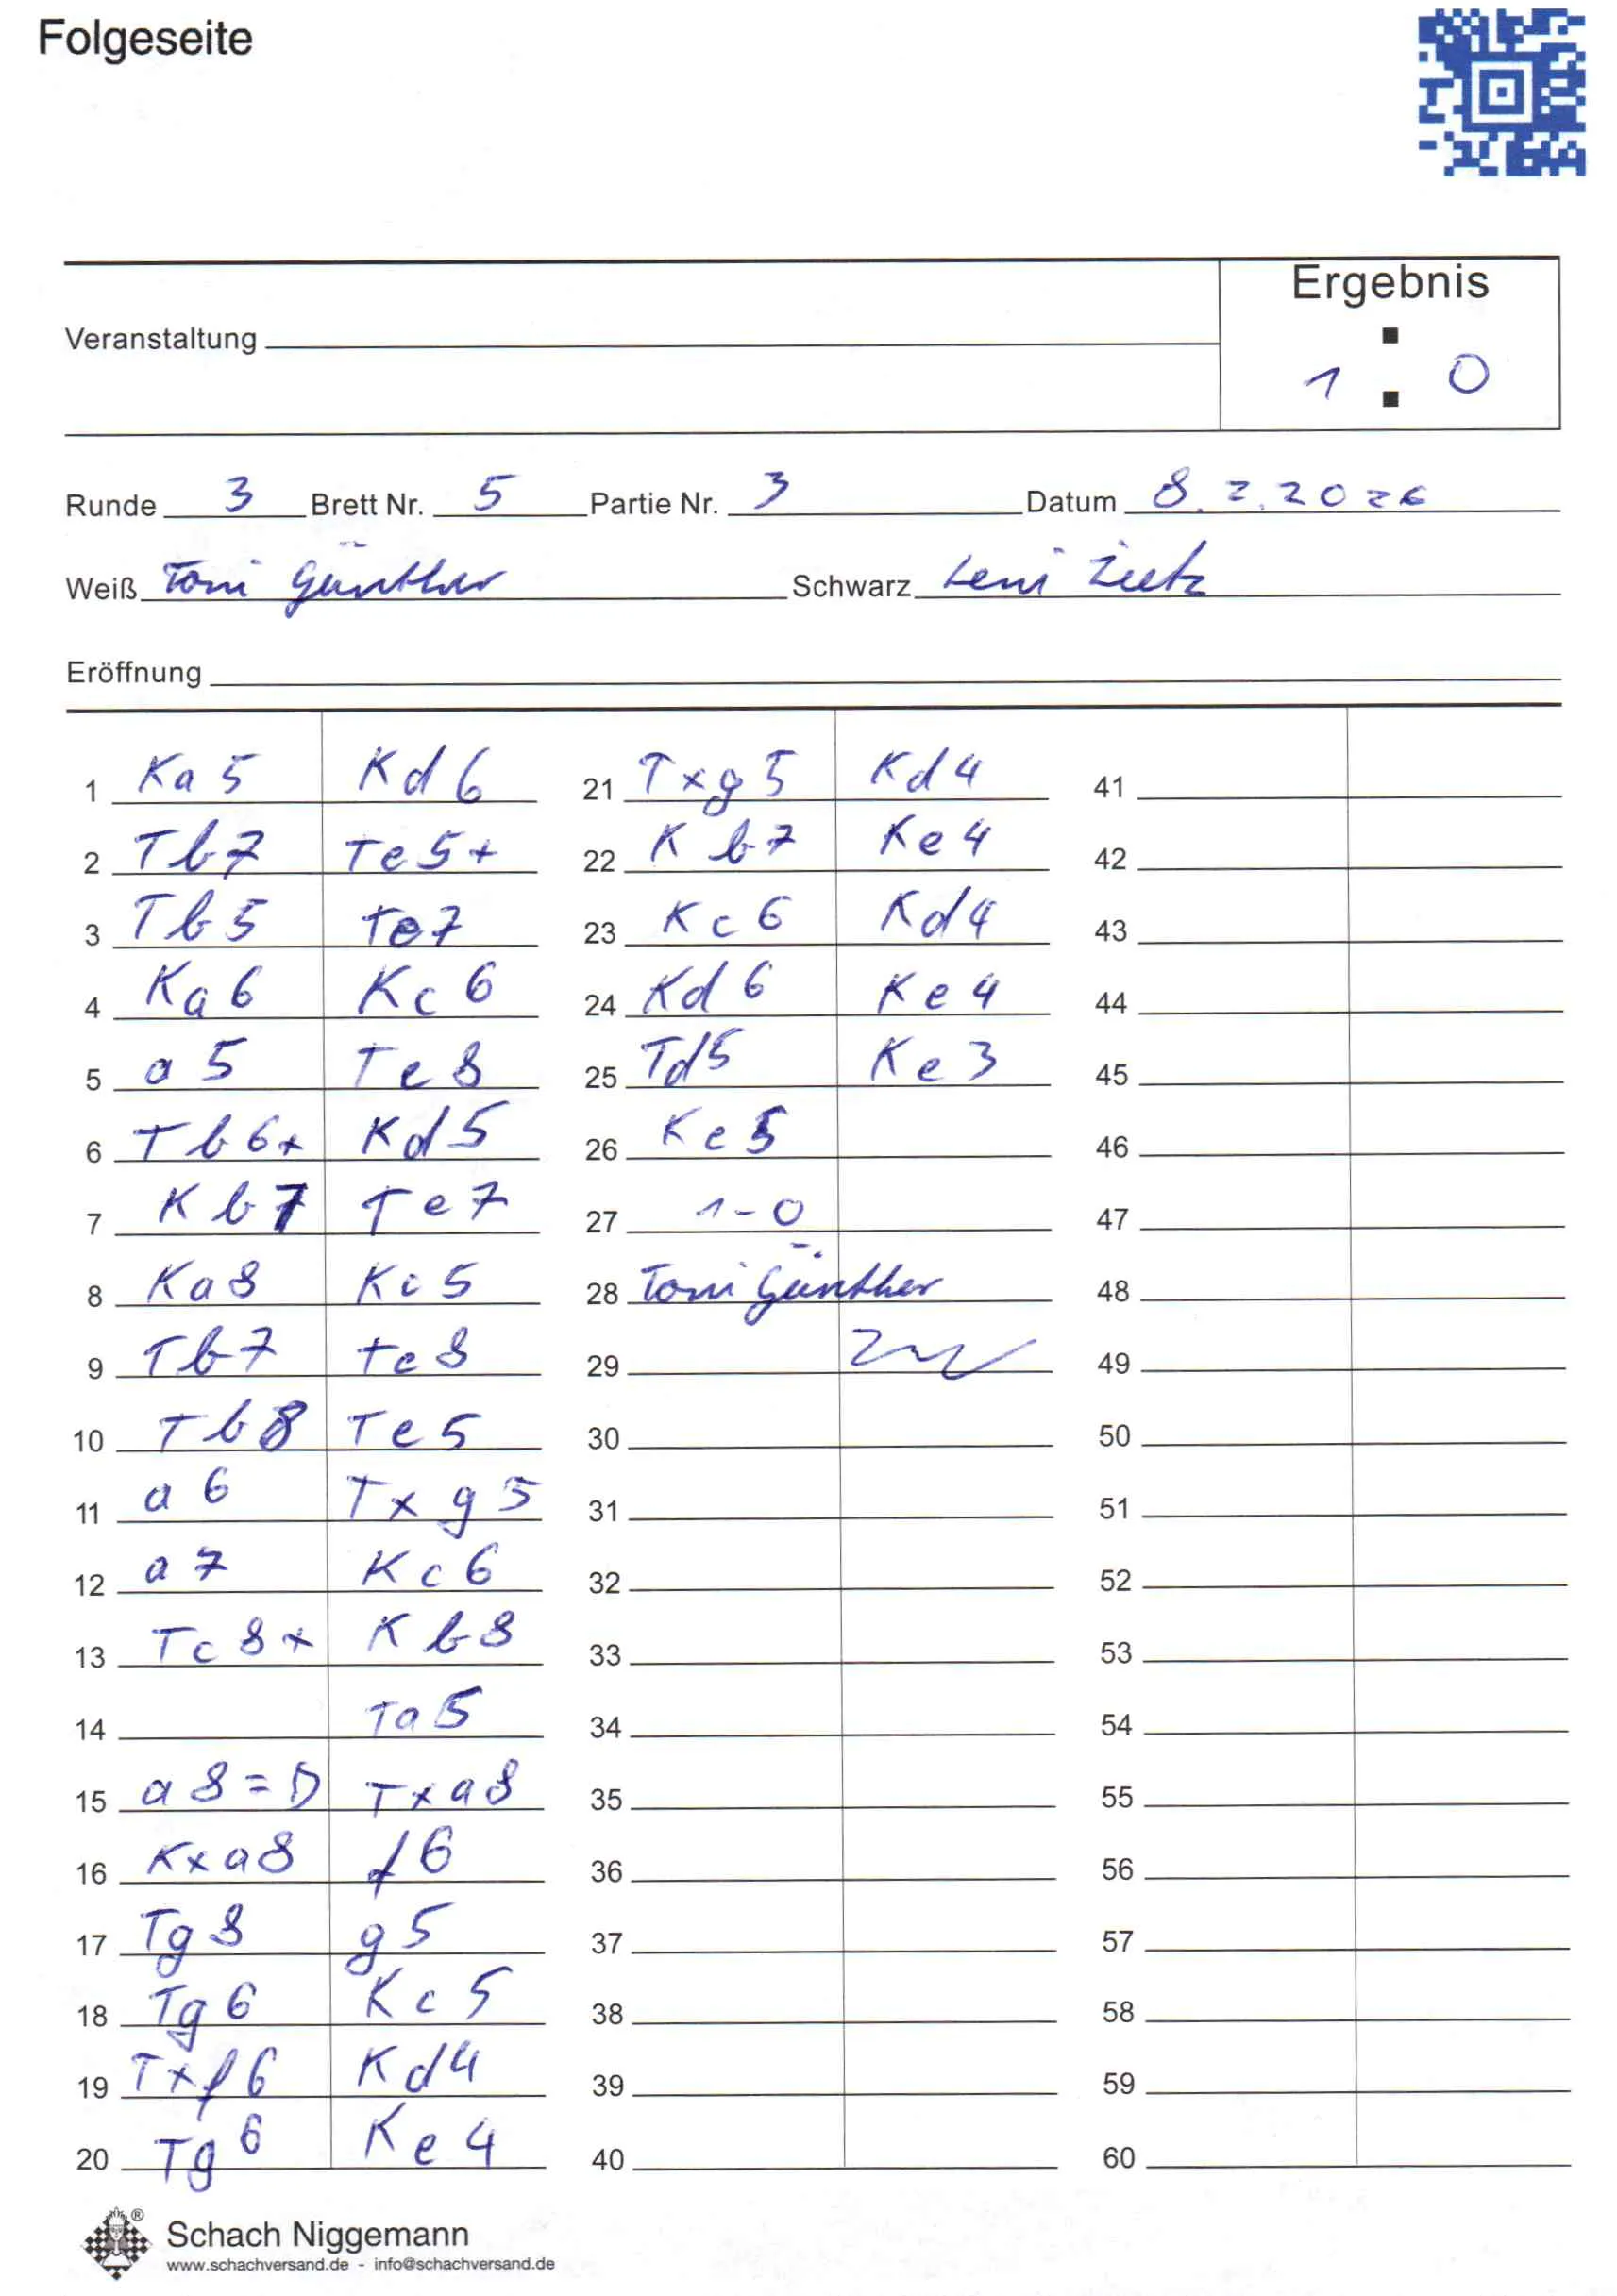 Folgeseite
Ergebnis
Veranstaltung
1 : 0
Runde 3 Brett Nr. 5 Partie Nr. 3 Datum 8. 2. 2026
Weiß Toni Günther Schwarz Leni
Eröffnung
1 Ka5 Kd6 21 Txg5 Kd4 41
2 Tb7 Te5+ 22 Kb7 Ke4 42
3 Tb5 Te7 23 Kc6 Kd4 43
4 Ka6 Kc6 24 Kd6 Ke4 44
5 a5 Te8 25 Td5 Ke3 45
6 Tb6+ Kd5 26 Ke5 46
7 Kb7 Te7 27 1-0 47
8 Ka8 Kc5 28 Toni Günther 48
9 Tb7 Te8 29 49
10 Tb8 Te5 30 50
11 a6 Txg5 31 51
12 a7 Kc6 32 52
13 Tc8+ Kb8 33 53
14 Ta5 34 54
15 a8=D Txa8 35 55
16 Kxa8 f6 36 56
17 Tg8 g5 37 57
18 Tg6 Kc5 38 58
19 Txf6 Kd4 39 59
20 Tg6 Ke4 40 60
Schach Niggemann
www.schachversand.de - info@schachversand.de